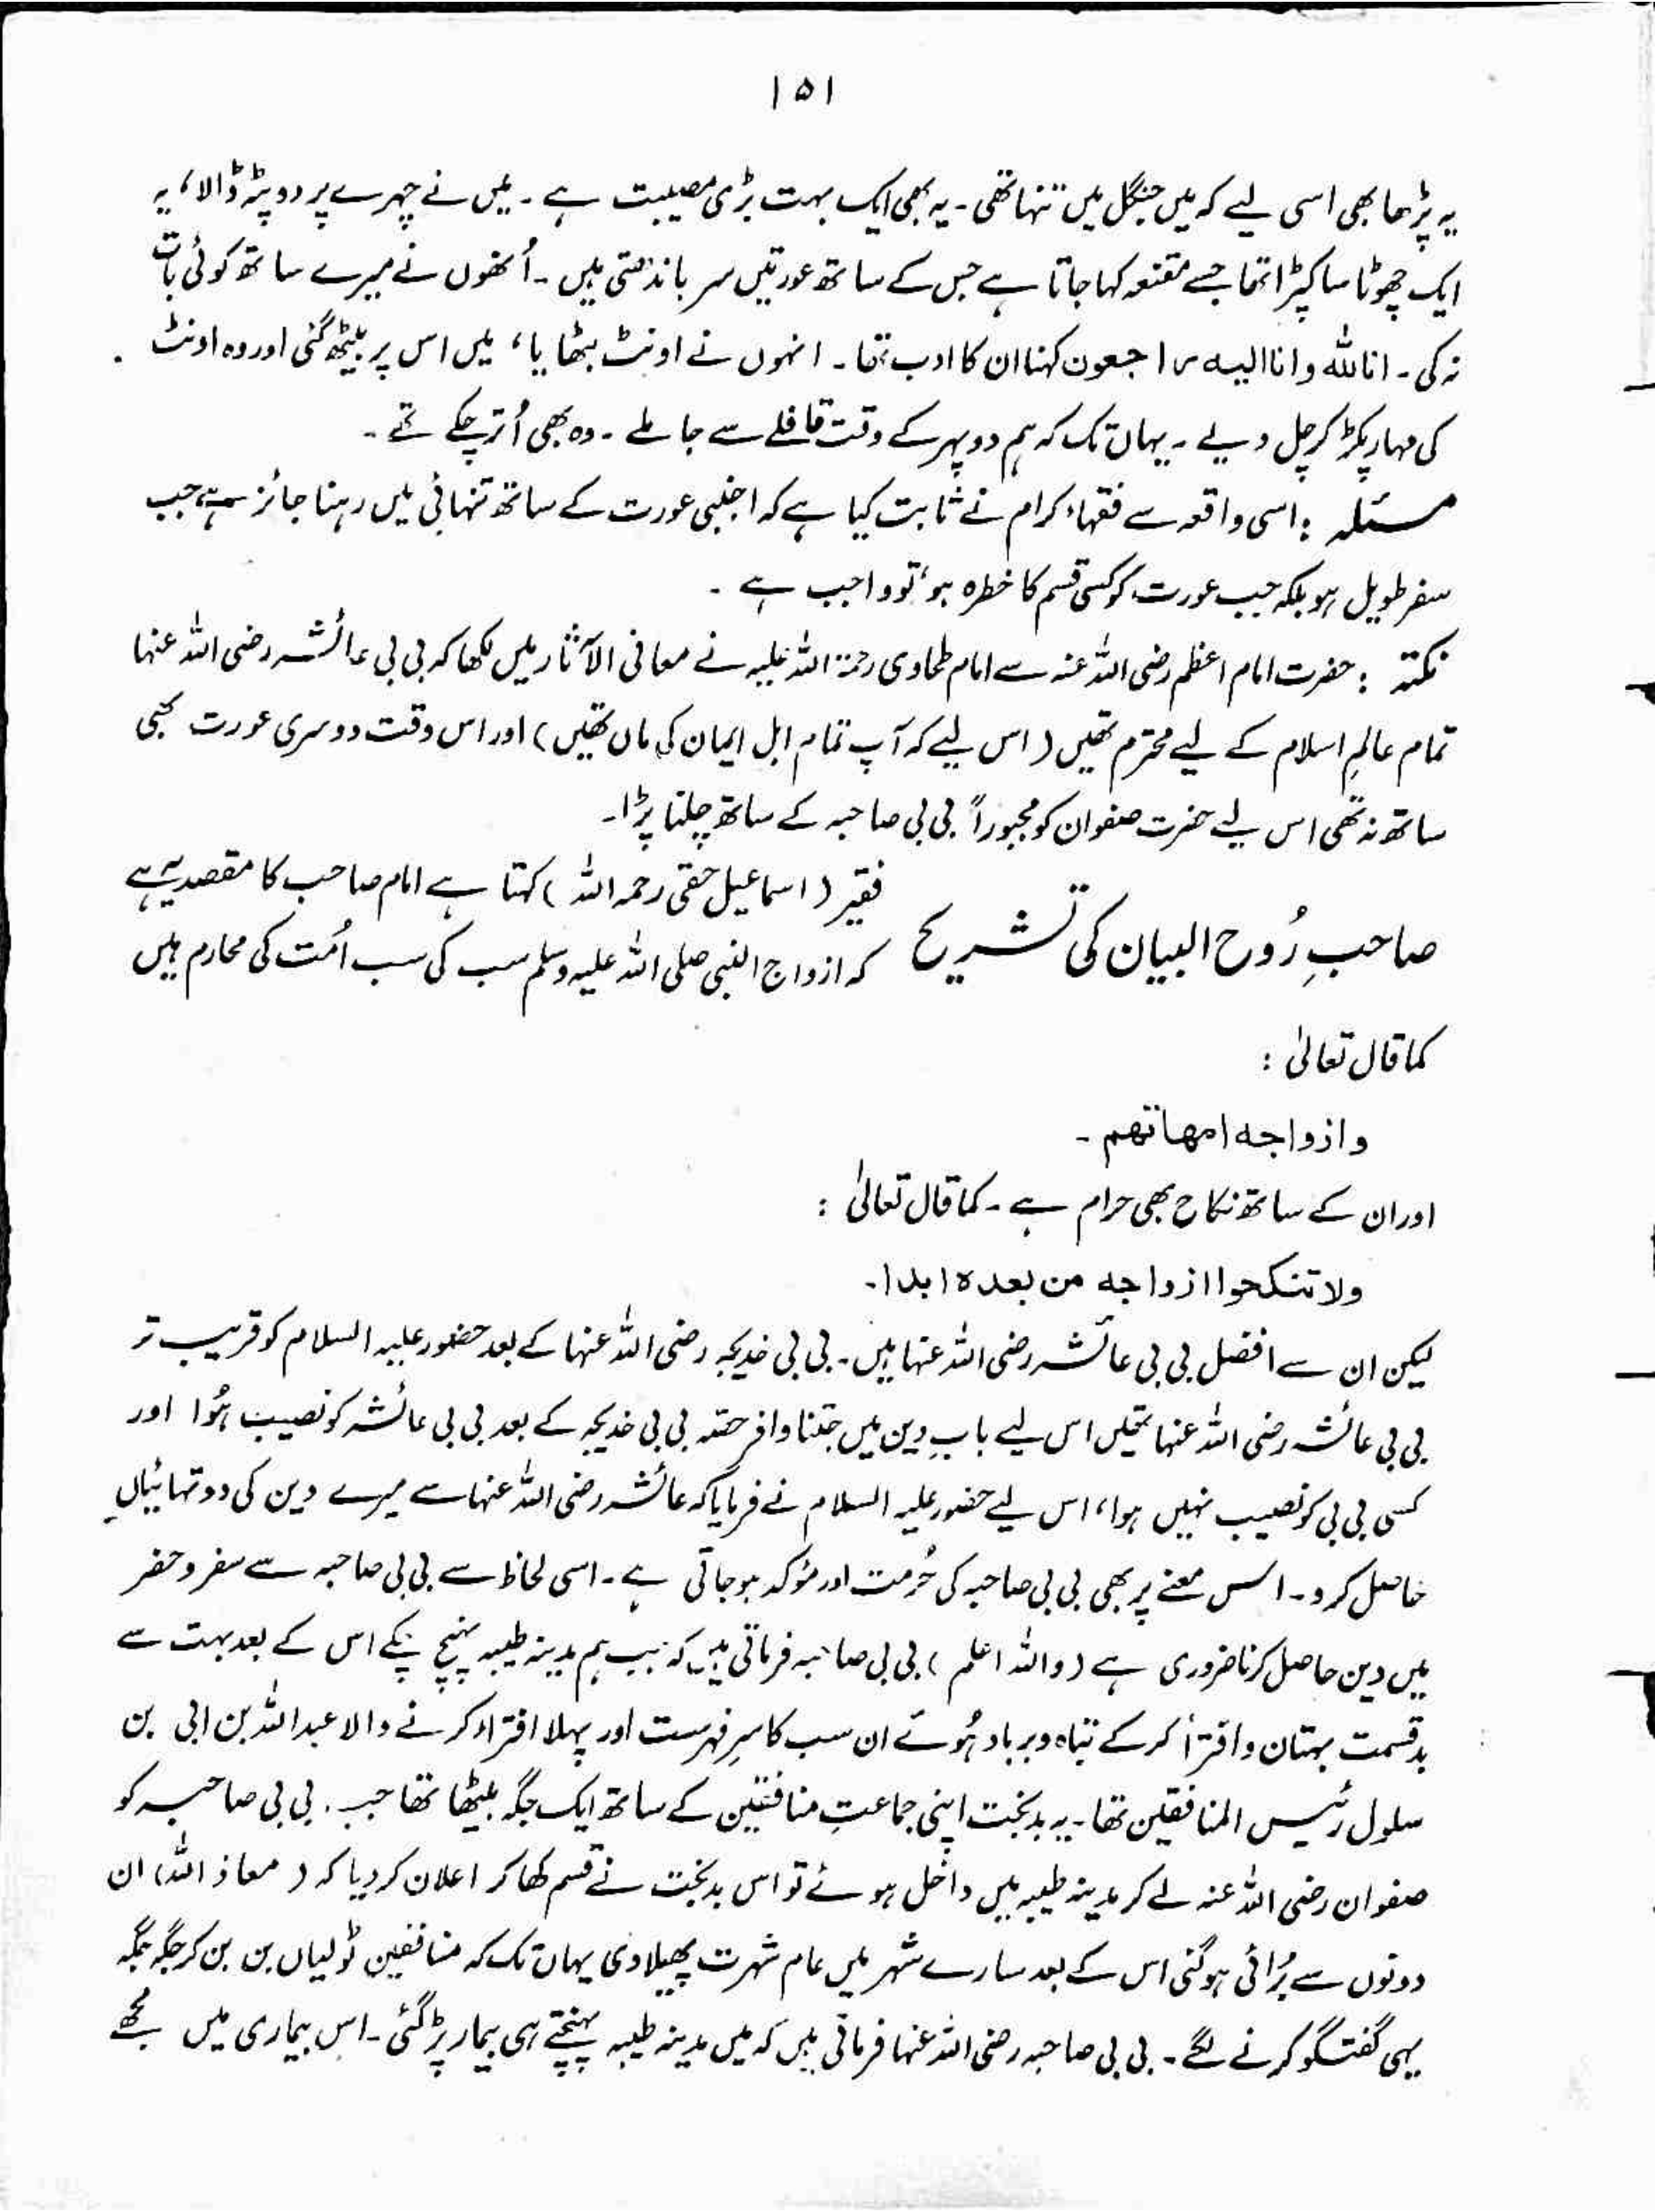 ۱۵۱
یہ پڑھا بھی اسی لیے کہ میں جنگل میں تنہا تھی ۔ یہ بھی ایک بہت بڑی مصیبت ہے ۔ میں نے چہرے پر دوپٹہ ڈالا، یہ
ایک چھوٹا سا کپڑا تھا جسے مقنعہ کہا جاتا ہے جس کے ساتھ عورتیں سر باندھتی ہیں ۔ اُنھوں نے میرے ساتھ کوئی بات
نہ کی ۔ انا للہ وانا الیہ راجعون کہنا ان کا ادب تھا ۔ انہوں نے اونٹ بٹھایا، میں اس پر بیٹھ گئی اور وہ اونٹ
کی مہار پکڑ کر چل دیے ۔ یہاں تک کہ ہم دوپہر کے وقت قافلے سے جا ملے ۔ وہ بھی اُتر چکے تھے ۔
مسئلہ : اسی واقعہ سے فقہاء کرام نے ثابت کیا ہے کہ اجنبی عورت کے ساتھ تنہائی میں رہنا جائز ہے جب
سفر طویل ہو بلکہ جب عورت کو کسی قسم کا خطرہ ہو، تو واجب ہے ۔
نکتہ : حضرت امام اعظم رضی اللہ عنہ سے امام طحاوی رحمۃ اللہ علیہ نے معانی الآثار میں لکھا کہ بی بی عائشہ رضی اللہ عنہا
تمام عالمِ اسلام کے لیے محترم تھیں (اس لیے کہ آپ تمام اہل ایمان کی ماں تھیں) اور اس وقت دوسری عورت بھی
ساتھ نہ تھی اس لیے حضرت صفوان کو مجبوراً بی بی صاحبہ کے ساتھ چلنا پڑا۔
صاحبِ رُوح البیان کی تشریح فقیر (اسماعیل حقی رحمہ اللہ) کہتا ہے امام صاحب کا مقصد یہ ہے
کہ ازواج النبی صلی اللہ علیہ وسلم سب کی سب اُمت کی محارم ہیں
کما قال تعالیٰ :
وازواجہ امھاتھم ۔
اور ان کے ساتھ نکاح بھی حرام ہے ۔ کما قال تعالیٰ :
ولا تنکحوا ازواجه من بعدہ ابدا ۔
لیکن ان سے افضل بی بی عائشہ رضی اللہ عنہا ہیں ۔ بی بی خدیجہ رضی اللہ عنہا کے بعد حضور علیہ السلام کو قریب تر
بی بی عائشہ رضی اللہ عنہا تھیں اس لیے بابِ دین میں جتنا وافر حصّہ بی بی خدیجہ کے بعد بی بی عائشہ کو نصیب ہُوا اور
کسی بی بی کو نصیب نہیں ہوا، اس لیے حضور علیہ السلام نے فرمایا کہ عائشہ رضی اللہ عنہا سے میرے دین کی دو تہائیاں
حاصل کرو ۔ اس معنے پر بھی بی بی صاحبہ کی حُرمت اور مؤکد ہوجاتی ہے ۔ اسی لحاظ سے بی بی صاحبہ سے سفر و حضر
میں دین حاصل کرنا ضروری ہے (واللہ اعلم) بی بی صاحبہ فرماتی ہیں کہ جب ہم مدینہ طیبہ پہنچ چکے اس کے بعد بہت سے
بدقسمت بہتان و افترأ کر کے تباہ و برباد ہُوئے ان سب کا سرِفہرست اور پہلا افتراء کرنے والا عبداللہ بن ابی بن
سلول رئیس المنافقین تھا ۔ یہ بدبخت اپنی جماعتِ منافقین کے ساتھ ایک جگہ بیٹھا تھا جب بی بی صاحبہ کو
صفوان رضی اللہ عنہ لے کر مدینہ طیبہ میں داخل ہوئے تو اس بدبخت نے قسم کھا کر اعلان کر دیا کہ (معاذ اللہ) ان
دونوں سے بُرائی ہوگئی اس کے بعد سارے شہر میں عام شہرت پھیلا دی یہاں تک کہ منافقین ٹولیاں بن بن کر جگہ جگہ
یہی گفتگو کرنے لگے ۔ بی بی صاحبہ رضی اللہ عنہا فرماتی ہیں کہ میں مدینہ طیبہ پہنچتے ہی بیمار پڑ گئی ۔ اس بیماری میں مجھے